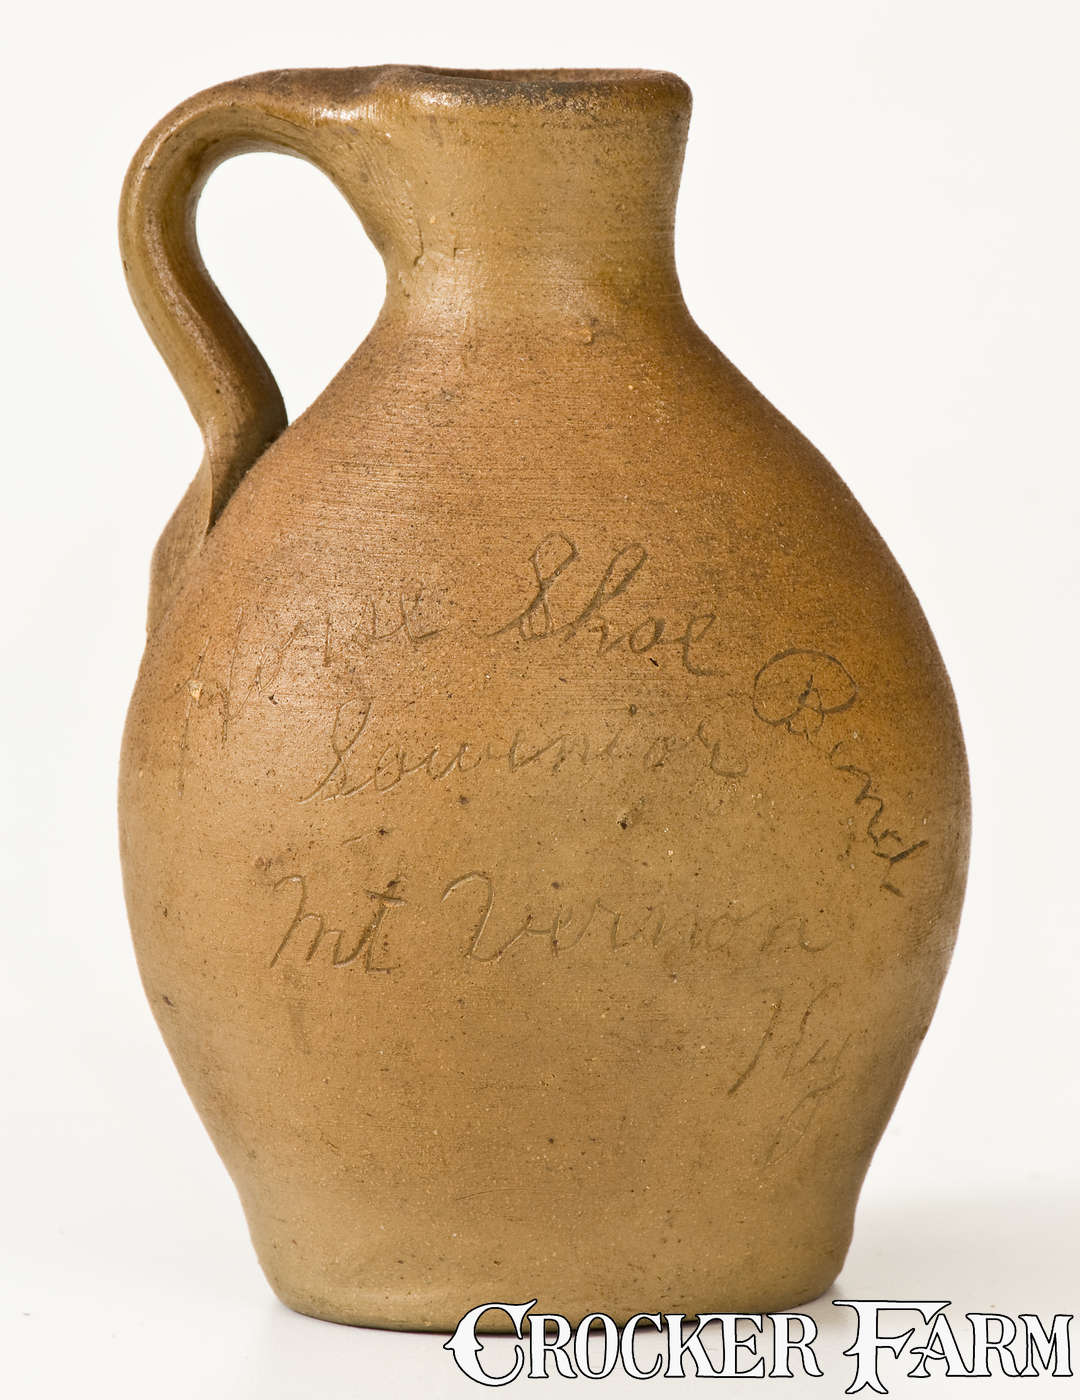 Horse Shoe Bend
Souvenior
Mt Vernon
Ky
CROCKER FARM